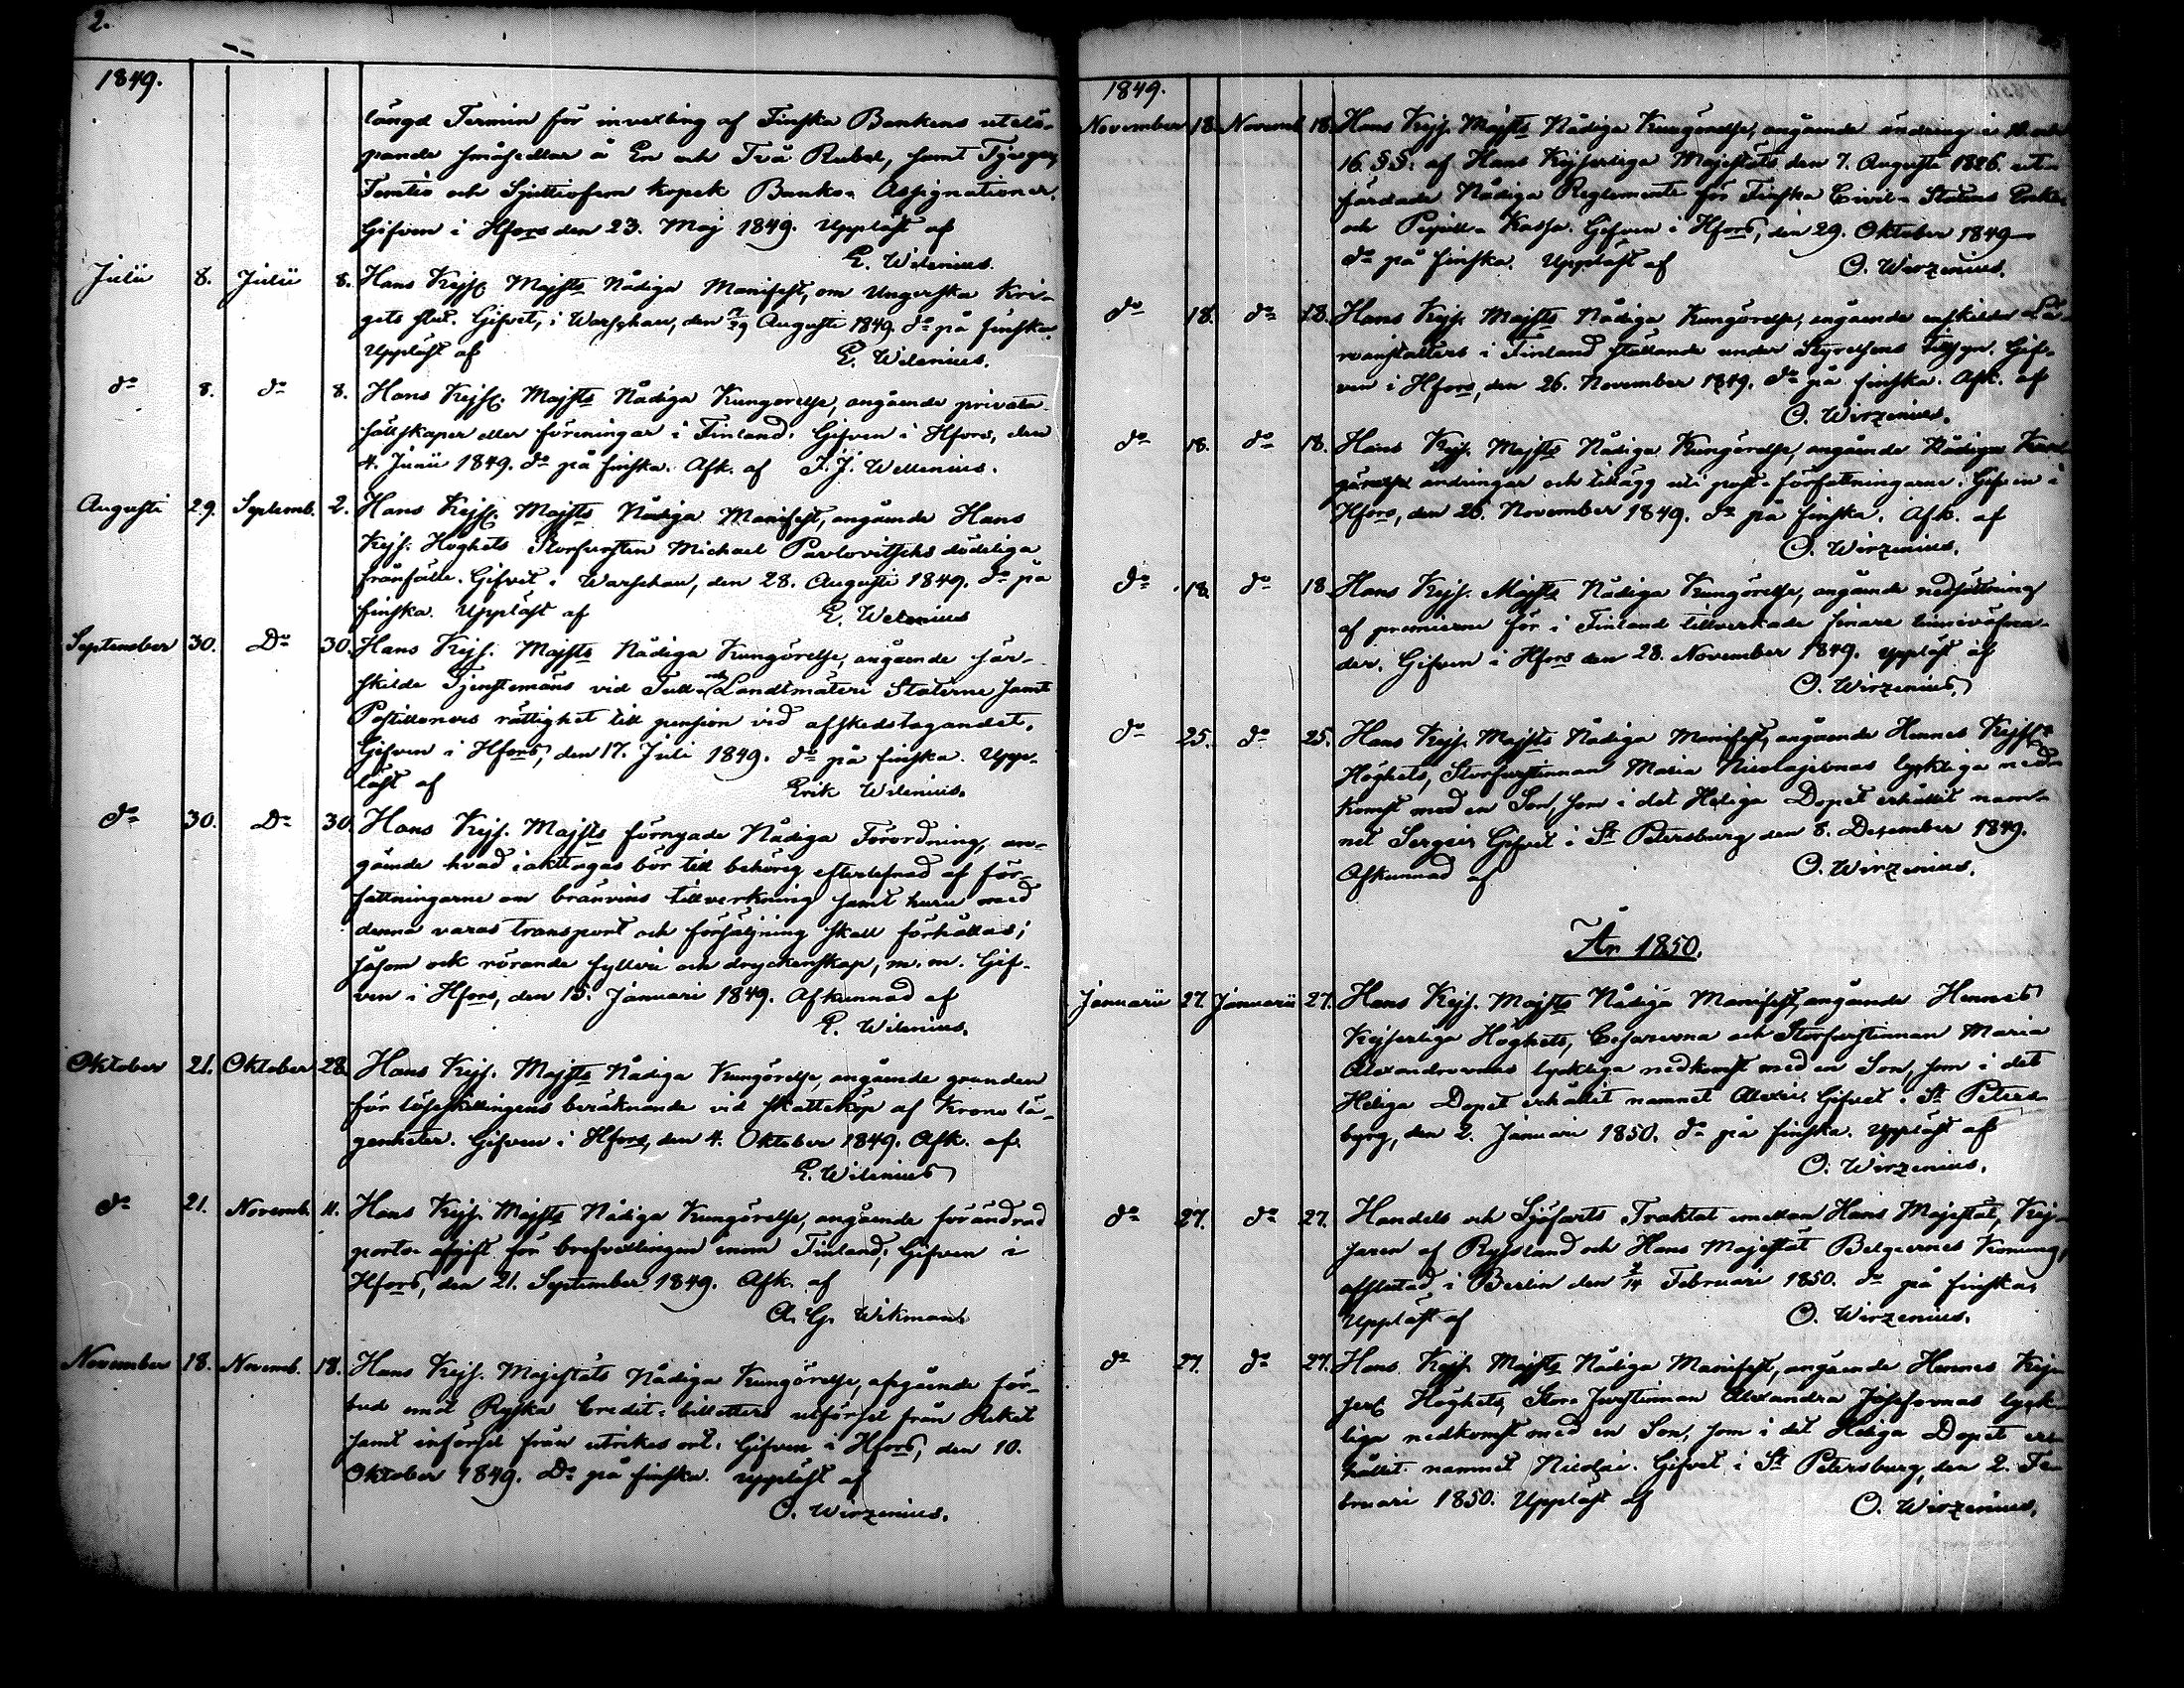 2.
1849.
längd Termin för invexling af Finska Bankens utelö-
pande småsedlar à En och Två Rubel, samt Tjugo,
Femtio och Sjuttiofem kopek Banko-Assignationer.
Gifven i Hfors den 23. Maj 1849. Uppläst af
E. Wilenius.
Julii 8. Julii 8. Hans Kejs. Majsts Nådiga Manifest, om Ungerska Kri-
gets slut. Gifvet, i Warschau, den 17/29 Augusti 1849. do på finska.
Uppläst af E. Wilenius.
do 8. do 8. Hans Kejs. Majsts Nådiga Kungörelse, angående privata
sällskaper eller föreningar i Finland. Gifven i Hfors, den
4. Junii 1849. do på finska. Afk. af J. J. Wellenius.
Augusti 29. Septemb. 2. Hans Kejs. Majsts Nådiga Manifest, angående Hans
Kejs. Höghets Storfursten Michael Pavlovitschs dödeliga
frånfälle. Gifvet i Warschau, den 28. Augusti 1849. do på
finska. Uppläst af E. Welenius
September 30. Do 30. Hans Kejs. Majsts Nådiga Kungörelse, angående sär-
skilde Tjenstemäns vid Tull- och Landtmäteri Staterne samt
Postillioners rättighet till pension vid afskedstagandet.
Gifven i Hfors, den 17. Juli 1849. do på finska. Upp-
läst af Erik Wilenius.
do 30. Do 30. Hans Kejs. Majsts förnyade Nådiga Förordning, an-
gående hvad iakttagas bör till behörig efterlefnad af för-
fattningarne om bränvins tillverkning samt huru med
denna varas transport och försäljning skall förhållas;
såsom ock rörande fylleri och dryckenskap, m. m. Gif-
ven i Hfors, den 15. Januari 1849. Afkunnad af
E. Wilenius.
Oktober 21. Oktober 28. Hans Kejs. Majsts Nådiga Kungörelse, angående grunden
för löseskillingens beräknande vid skatteköp af Krono lä-
genheter. Gifven i Hfors, den 4. Oktober 1849. Afk. af
E. Wilenius
do 21. Novemb. 11. Hans Kejs. Majsts Nådiga Kungörelse, angående förändrad
porto-afgift för brefvexlingen inom Finland; Gifven i
Hfors, den 21. September 1849. Afk. af
A. G. Wikman
November 18. Novemb. 18. Hans Kejs. Majestäts Nådiga Kungörelse, angående för-
bud emot Ryska Credit-billetters utförsel från Riket
samt införsel från utrikes ort. Gifven i Hfors, den 10.
Oktober 1849. Do på finska. Uppläst af
O. Wirzenius.
1849.
November 18. Novemb. 18. Hans Kejs. Majsts Nådiga Kungörelse, angående ändring i
16. §§: af Hans Kejserliga Majestäts den 7. Augusti 1826. ut-
färdade Nådiga Reglemente för Finska Civil-Statens Enke-
och Pupill-Kassa. Gifven i Hfors, den 29. Oktober 1849
do på finska. Uppläst af O. Wirzenius.
do 18. do 18. Hans Kejs. Majsts Nådiga Kungörelse, angående enskilda Lä-
roanstalters i Finland ställande under Styrelsens tillsyn. Gif-
ven i Hfors, den 26. November 1849. do på finska. Afk. af
O. Wirzenius.
do 18. do 18. Hans Kejs. Majsts Nådiga Kungörelse, angående Nådiga
ändringar och tillägg uti post-författningarne. Gifven i
Hfors, den 26. November 1849. do på finska. Afk. af
O. Wirzenius.
do 18. do 18. Hans Kejs. Majsts Nådiga Kungörelse, angående nedsättning
af premierne för i Finland tillverkade finare linneväfna-
der. Gifven i Hfors den 28. November 1849. Uppläst af
O. Wirzenius.
do 25. do 25. Hans Kejs. Majsts Nådiga Manifest, angående Hennes Kejs.
Höghets, Storfurstinnan Maria Nicolajevnas lyckliga ned-
komst med en Son, som i det Heliga Dopet erhållit nam-
net Sergei. Gifvet i St Petersburg den 8. December 1849.
Afkunnad af O. Wirzenius.
År 1850.
Januarii 27. Januarii 27. Hans Kejs. Majsts Nådiga Manifest, angående Hennes
Kejserliga Höghets, Cesarevna och Storfurstinnan Maria
Alexandrovnas lyckliga nedkomst med en Son, som i det
Heliga Dopet erhållit namnet Alexei. Gifvet i St Peters-
byrg, den 2. Januari 1850. do på finska. Uppläst af
O. Wirzenius.
do 27. do 27. Handels och Sjöfarts Traktat emellan Hans Majestät, Kej-
saren af Ryssland och Hans Majestät Belgiernes Konung,
afslutad i Berlin den 2/14 Februari 1850. do på finska.
Uppläst af O. Wirzenius.
do 27. do 27. Hans Kejs. Majsts Nådiga Manifest, angående Hennes Kej-
serl. Höghets, Stor-Furstinnan Alexandra Josefovnas lyck-
liga nedkomst med en Son, som i det Heliga Dopet er-
hållit namnet Nicolai. Gifvet i St Petersburg, den 2. Fe-
bruari 1850. Uppläst af O. Wirzenius.